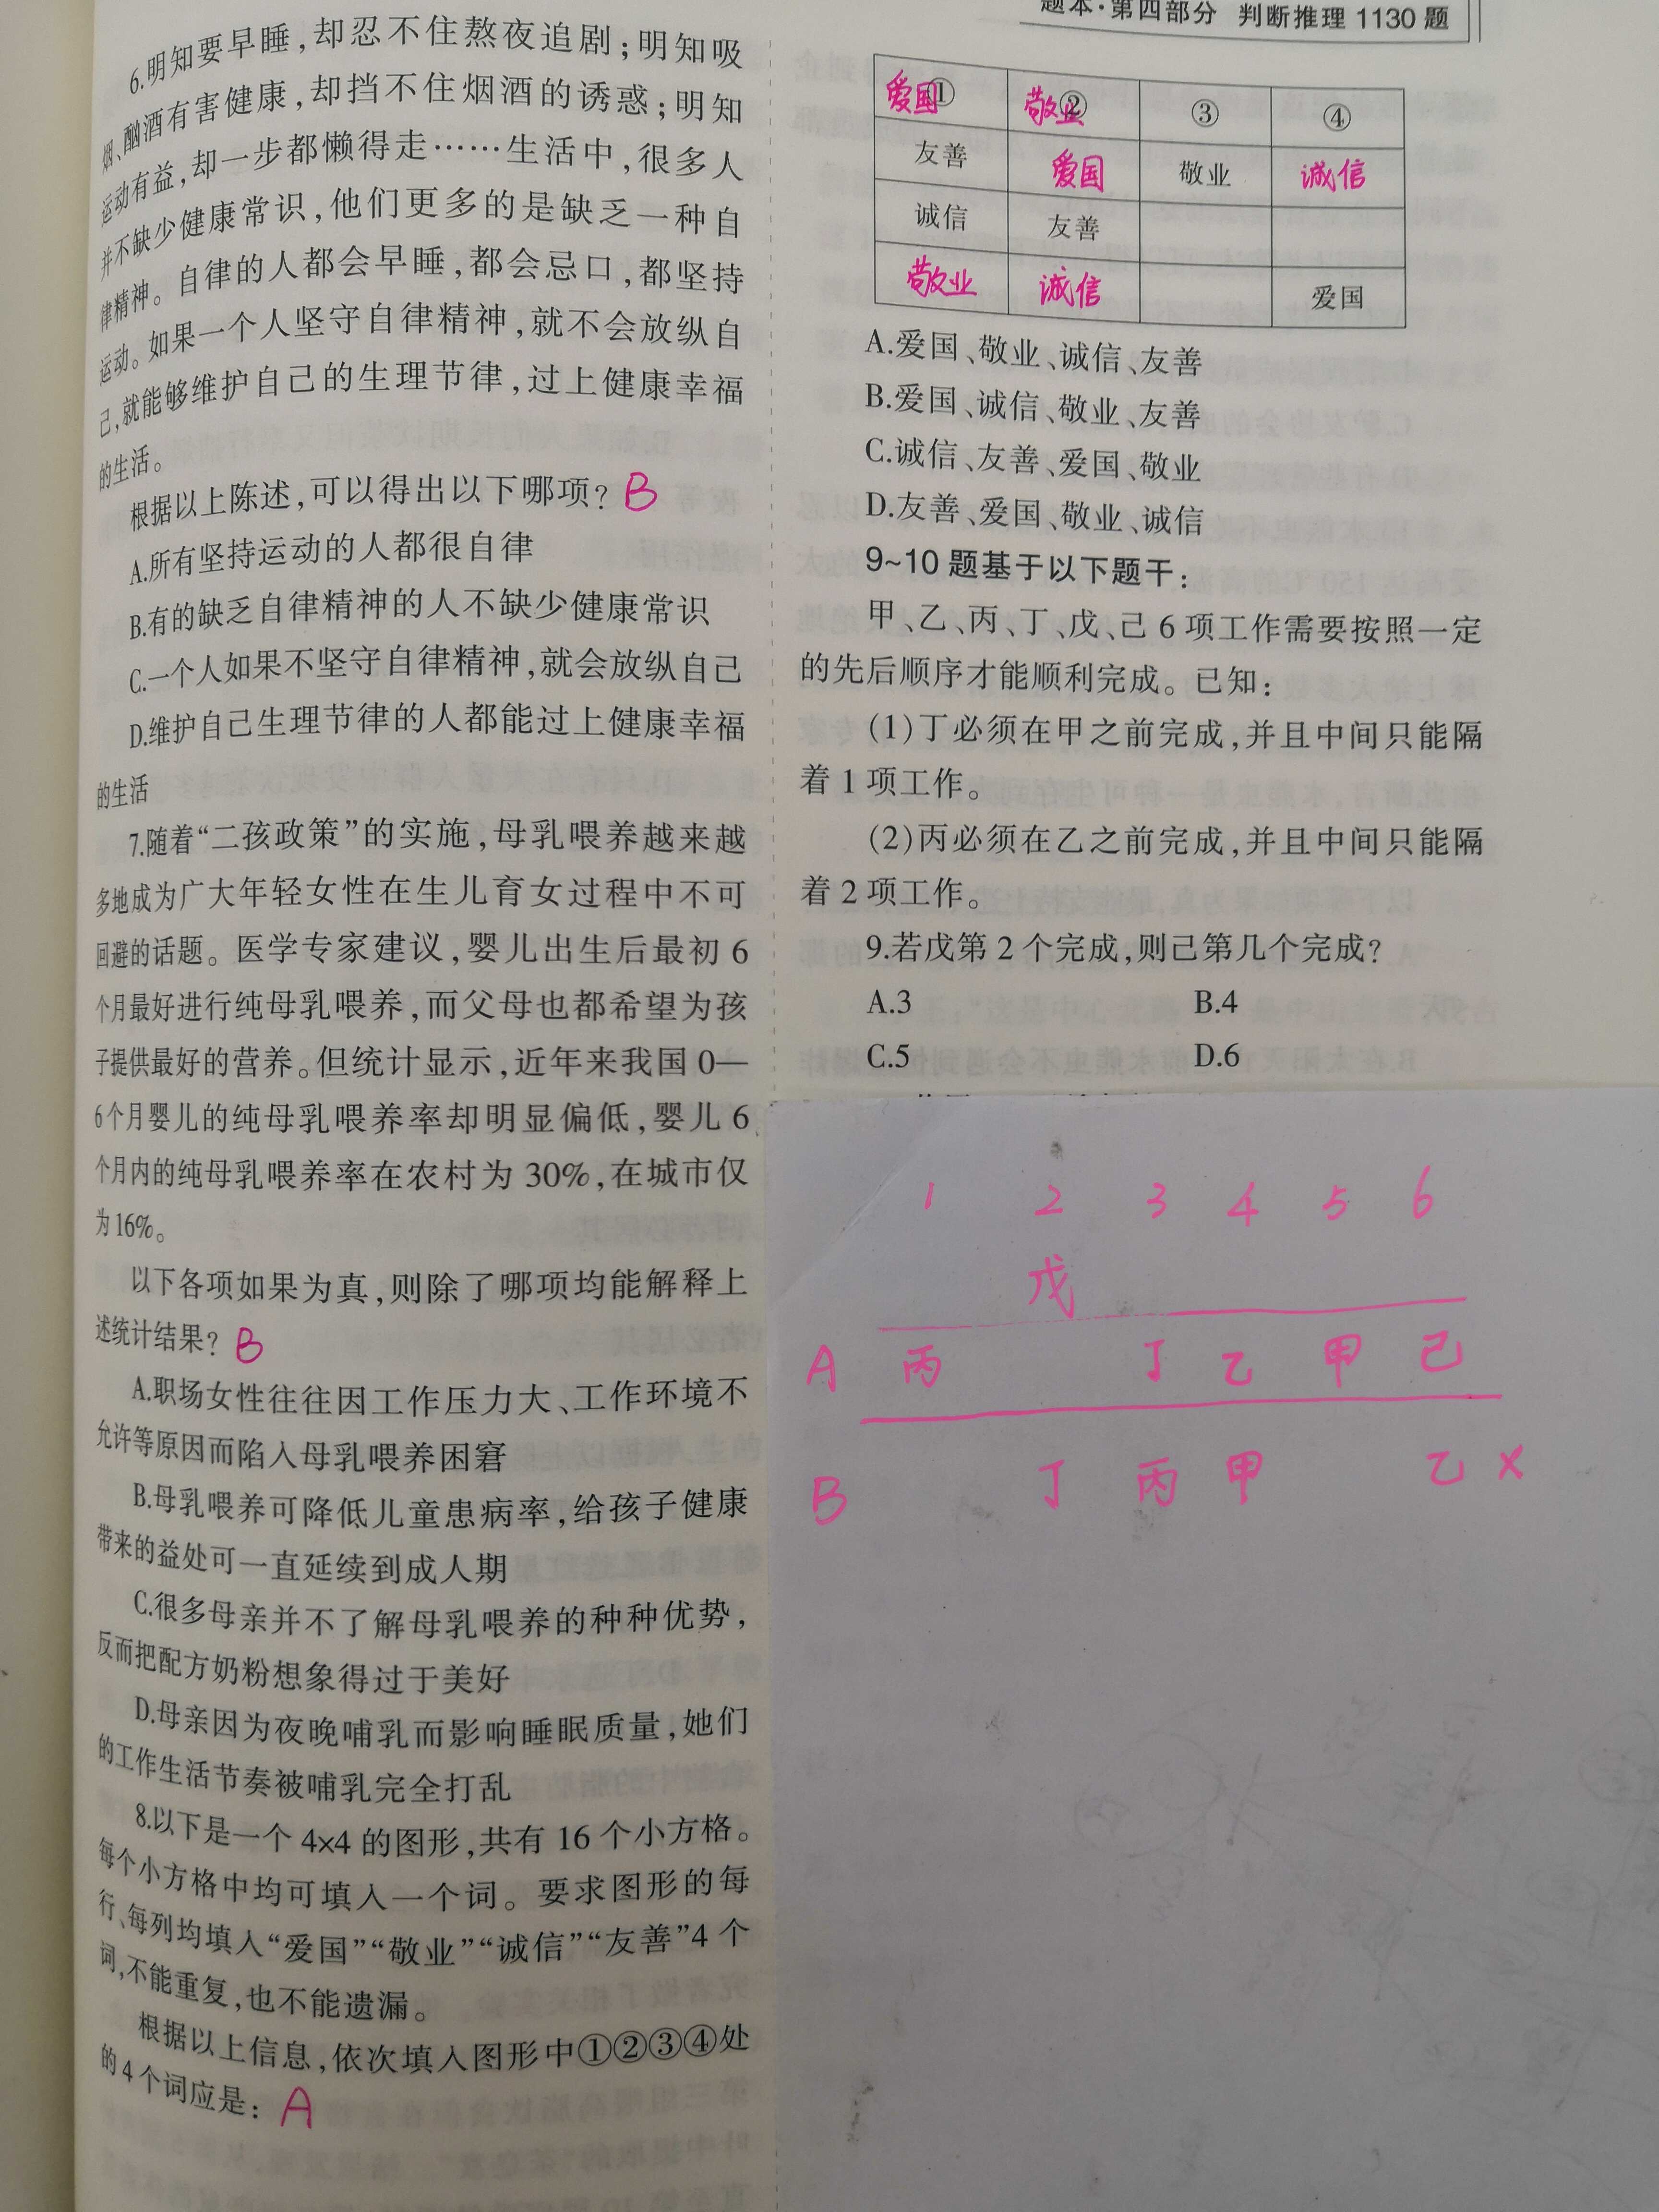 6.明知要早睡,却忍不住熬夜追剧;明知吸
烟、酗酒有害健康,却挡不住烟酒的诱惑;明知
运动有益,却一步都懒得走……生活中,很多人
并不缺少健康常识,他们更多的是缺乏一种自
律精神。自律的人都会早睡,都会忌口,都坚持
运动。如果一个人坚守自律精神,就不会放纵自
己,就能够维护自己的生理节律,过上健康幸福
的生活。
根据以上陈述,可以得出以下哪项? B
A.所有坚持运动的人都很自律
B.有的缺乏自律精神的人不缺少健康常识
C.一个人如果不坚守自律精神,就会放纵自己
D.维护自己生理节律的人都能过上健康幸福
的生活
7.随着“二孩政策”的实施,母乳喂养越来越
多地成为广大年轻女性在生儿育女过程中不可
回避的话题。医学专家建议,婴儿出生后最初 6
个月最好进行纯母乳喂养,而父母也都希望为孩
子提供最好的营养。但统计显示,近年来我国 0—
6个月婴儿的纯母乳喂养率却明显偏低,婴儿 6
个月内的纯母乳喂养率在农村为 30%,在城市仅
为16%。
以下各项如果为真,则除了哪项均能解释上
述统计结果? B
A.职场女性往往因工作压力大、工作环境不
允许等原因而陷入母乳喂养困窘
B.母乳喂养可降低儿童患病率,给孩子健康
带来的益处可一直延续到成人期
C.很多母亲并不了解母乳喂养的种种优势,
反而把配方奶粉想象得过于美好
D.母亲因为夜晚哺乳而影响睡眠质量,她们
的工作生活节奏被哺乳完全打乱
8.以下是一个 4×4 的图形,共有 16 个小方格。
每个小方格中均可填入一个词。要求图形的每
行、每列均填入“爱国”“敬业”“诚信”“友善”4 个
词,不能重复,也不能遗漏。
根据以上信息,依次填入图形中①②③④处
的 4 个词应是: A
题本·第四部分 判断推理 1130 题
爱国① 敬业② ③ ④
友善 爱国 敬业 诚信
诚信 友善
敬业 诚信 爱国
A.爱国、敬业、诚信、友善
B.爱国、诚信、敬业、友善
C.诚信、友善、爱国、敬业
D.友善、爱国、敬业、诚信
9~10 题基于以下题干:
甲、乙、丙、丁、戊、己 6 项工作需要按照一定
的先后顺序才能顺利完成。已知:
(1)丁必须在甲之前完成,并且中间只能隔
着 1 项工作。
(2)丙必须在乙之前完成,并且中间只能隔
着 2 项工作。
9.若戊第 2 个完成,则己第几个完成?
A.3 B.4
C.5 D.6
1 2 3 4 5 6
戊
A 丙 丁 乙 甲 己
B 丁 丙 甲 乙 ×